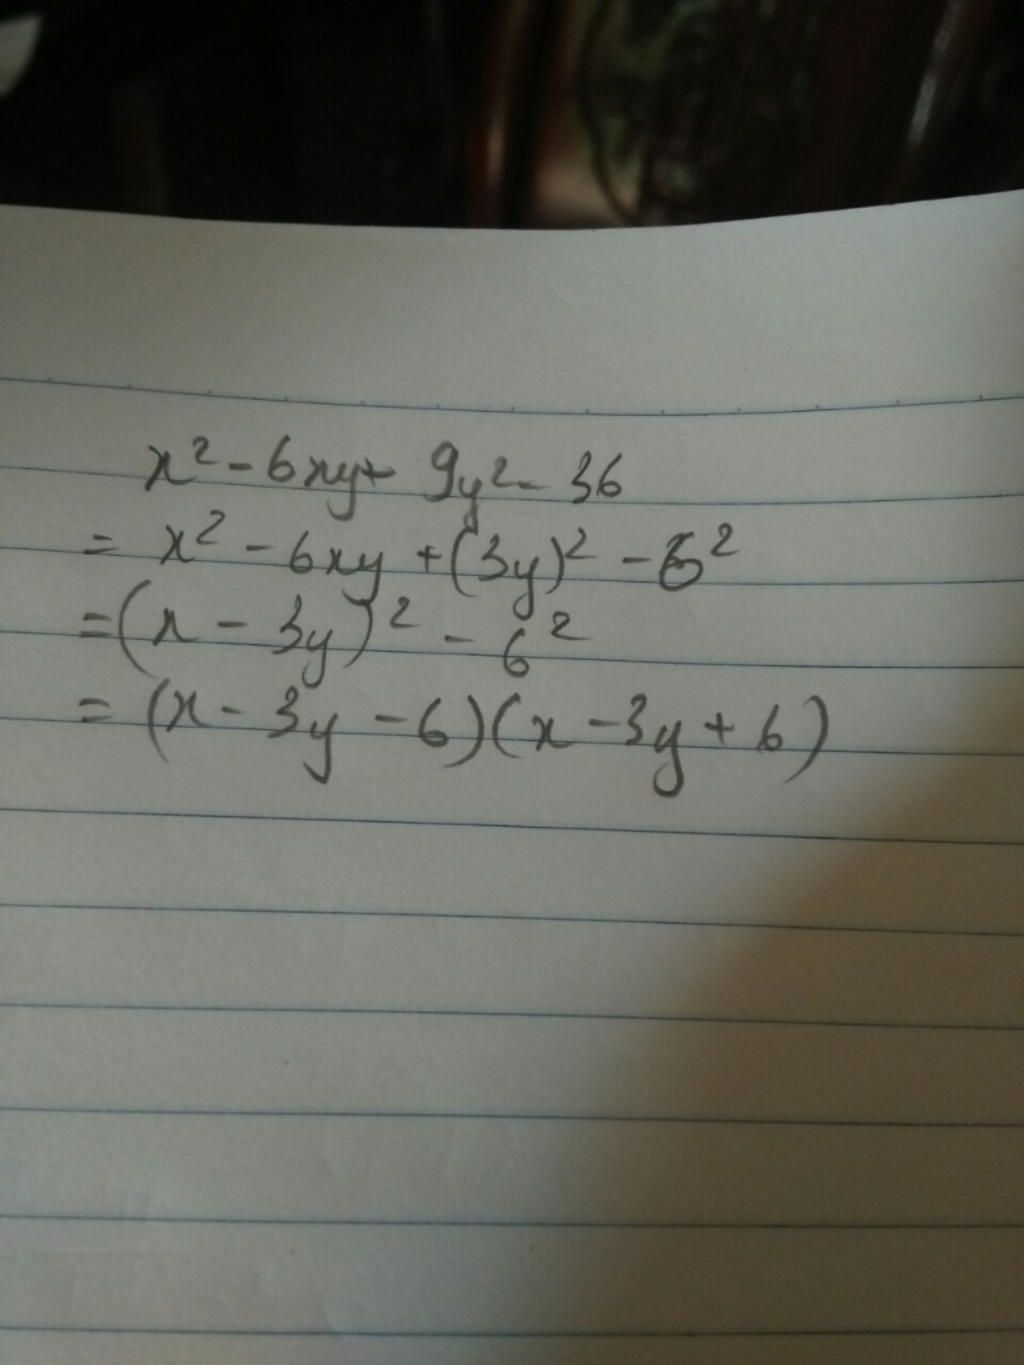 x² - 6xy + 9y² - 36
= x² - 6xy + (3y)² - 6²
= (x - 3y)² - 6²
= (x - 3y - 6)(x - 3y + 6)